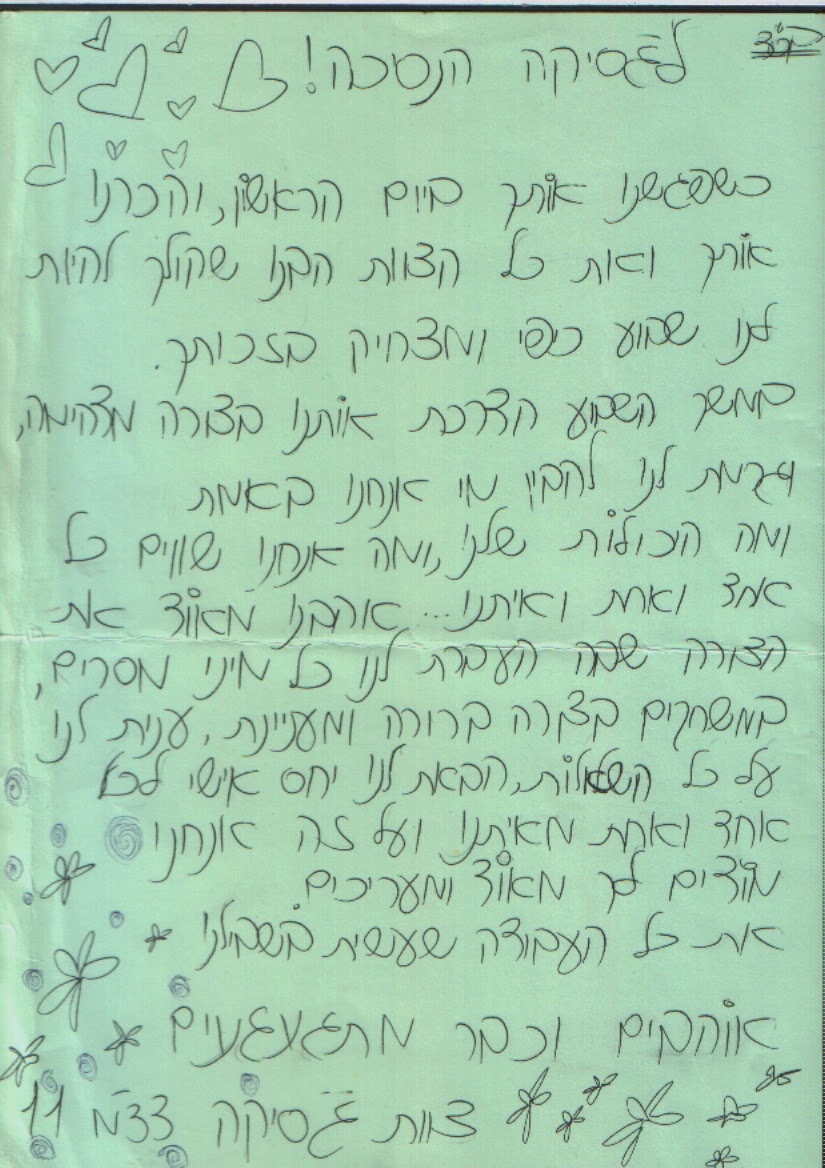 בס"ד
לג'סיקה הנסיכה!
כשפגשנו אותך ביום הראשון, והכרנו
אותך ואת כל הצוות הבנו שהולך להיות
לנו שבוע כיפי ומצחיק בזכותך.
במשך השבוע הדרכת אותנו בצורה מדהימה,
וגרמת לנו להבין מי אנחנו באמת
ומה היכולות שלנו, ומה אנחנו שווים כל
אחד ואחת ואיתנו... אהבנו מאוד את
הצורה שבה העברת לנו כל מיני מסרים,
במשחקים בצורה ברורה ומעניינת, ענית לנו
על כל השאלות, הבאת לנו יחס אישי לכל
אחד ואחת מאיתנו ועל זה אנחנו
מודים לך מאוד ומעריכים
את כל העבודה שעשית בשבילנו
אוהבים וכבר מתגעגעים
צוות ג'סיקה דצמ 11